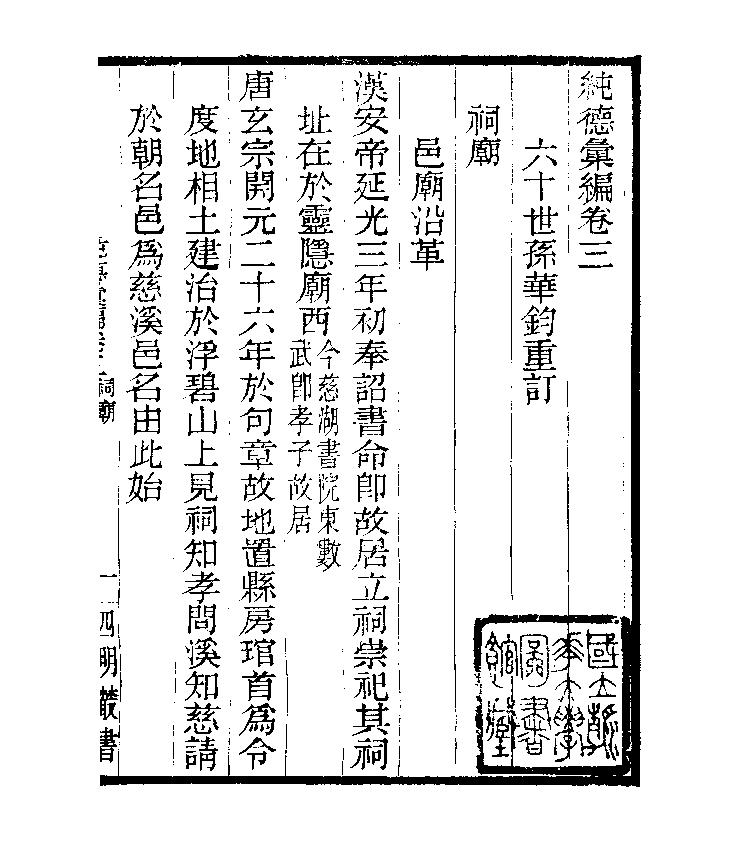 純德彙編卷三
六十世孫華鈞重訂
祠廟
邑廟沿革
漢安帝延光三年初奉詔書命卽故居立祠崇祀其祠
址在於靈隱廟西今慈湖書院東數武卽孝子故居
唐玄宗開元二十六年於句章故地置縣房琯首爲令
度地相土建治於浮碧山上見祠知孝問溪知慈請
於朝名邑爲慈溪邑名由此始
祠廟
一
四明叢書
國立
大學
圖書
館